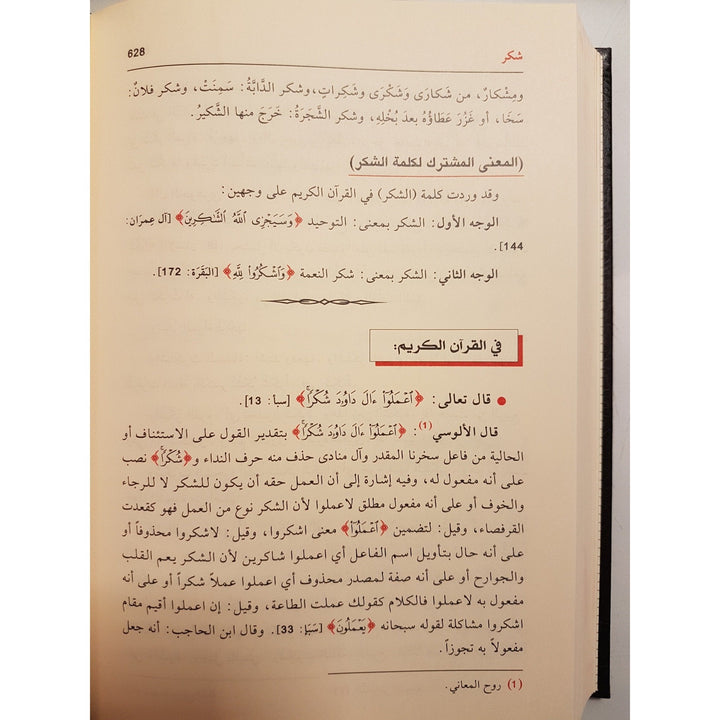 شكر
628
ومِشْكارٌ، من شَكارَى وَشَكْرَى وشَكِراتٍ، وشكر الدَّابَّةُ: سَمِنَتْ، وشكر فلانٌ:
سَخَا، أو غَزُرَ عَطَاؤُهُ بعدَ بُخْلِهِ، وشكر الشَّجَرَةُ: خَرَجَ منها الشَّكيرُ.
(المعنى المشترك لكلمة الشكر)
وقد وردت كلمة (الشكر) في القرآن الكريم على وجهين:
الوجه الأول: الشكر بمعنى: التوحيد ﴿وَسَيَجْزِى ٱللَّهُ ٱلشَّـٰكِرِينَ﴾ [آل عِمرَان:
144].
الوجه الثاني: الشكر بمعنى: شكر النعمة ﴿وَٱشْكُرُوا۟ لِلَّهِ﴾ [البَقَرَة: 172].
في القرآن الكريم:
● قال تعالى: ﴿ٱعْمَلُوٓا۟ ءَالَ دَاوُۥدَ شُكْرًۭا﴾ [سبأ: 13].
قال الألوسي(1): ﴿ٱعْمَلُوٓا۟ ءَالَ دَاوُۥدَ شُكْرًۭا﴾ بتقدير القول على الاستئناف أو
الحالية من فاعل سخرنا المقدر وآل منادى حذف منه حرف النداء و﴿شُكْرًۭا﴾ نصب
على أنه مفعول له، وفيه إشارة إلى أن العمل حقه أن يكون للشكر لا للرجاء
والخوف أو على أنه مفعول مطلق لاعملوا لأن الشكر نوع من العمل فهو كقعدت
القرفصاء، وقيل: لتضمين ﴿ٱعْمَلُوٓا۟﴾ معنى اشكروا، وقيل: لاشكروا محذوفاً أو
على أنه حال بتأويل اسم الفاعل أي اعملوا شاكرين لأن الشكر يعم القلب
والجوارح أو على أنه صفة لمصدر محذوف أي اعملوا عملاً شكراً أو على أنه
مفعول به لاعملوا فالكلام كقولك عملت الطاعة، وقيل: إن اعملوا أقيم مقام
اشكروا مشاكلة لقوله سبحانه ﴿يَعْمَلُونَ﴾ [سَبَإ: 33]. وقال ابن الحاجب: أنه جعل
مفعولاً به تجوزاً.
(1) روح المعاني.